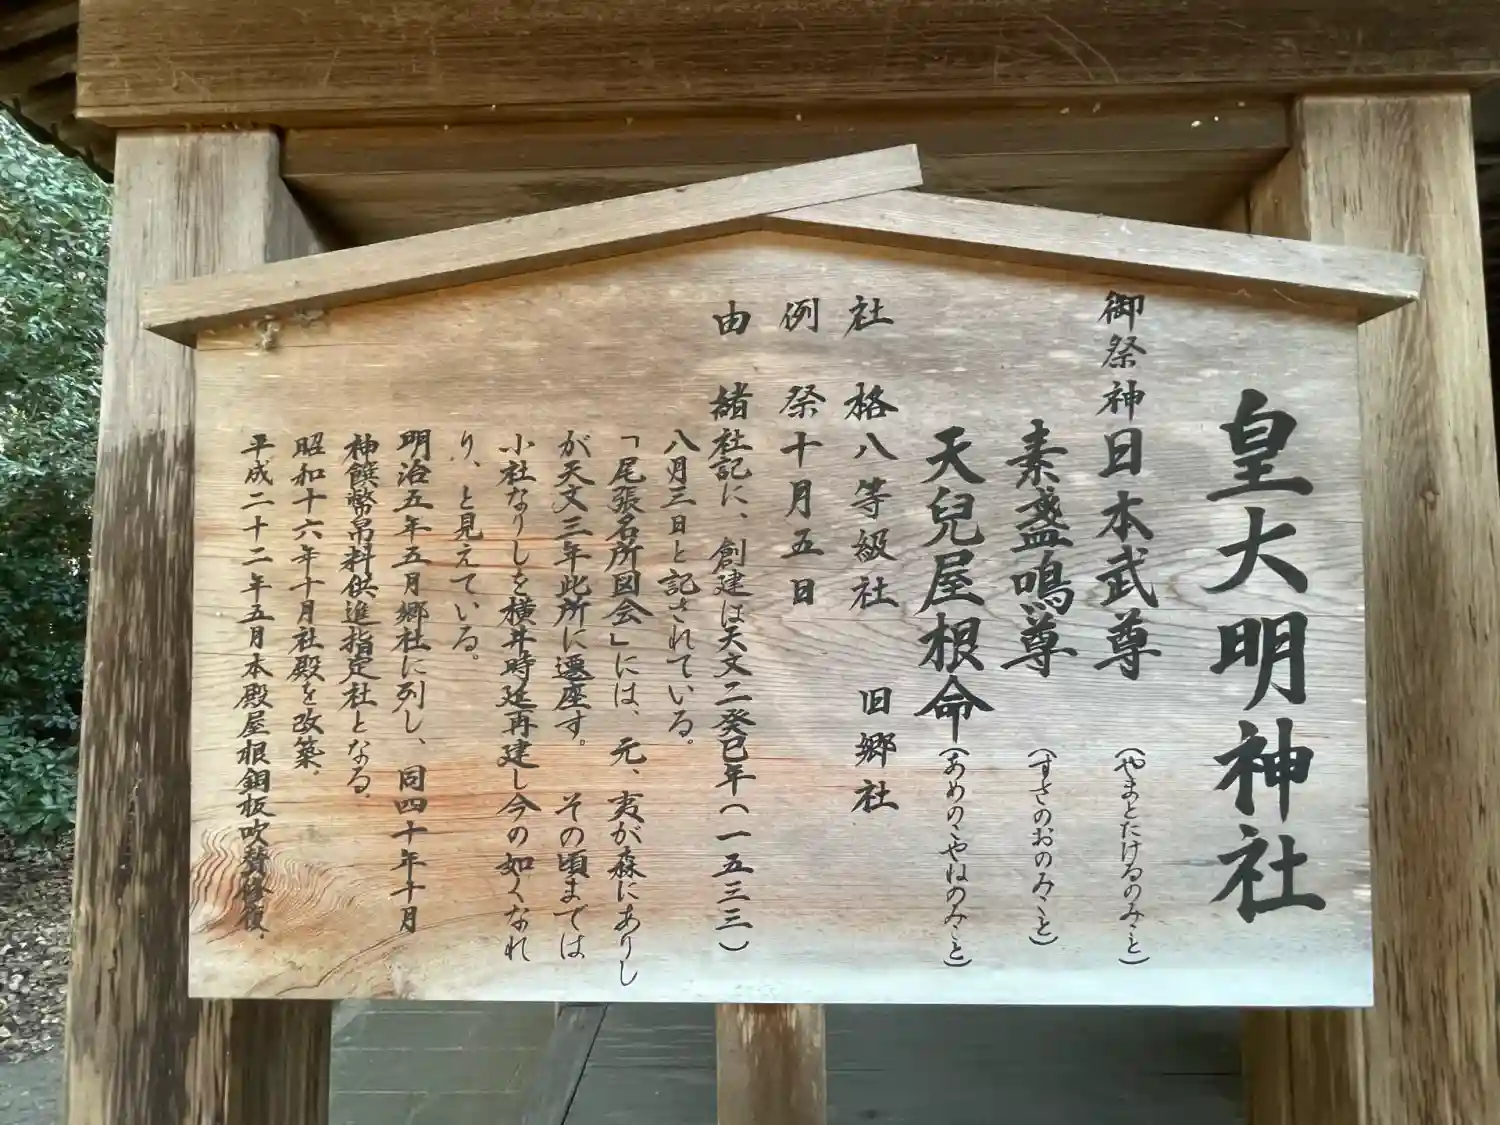 皇大明神社
御祭神 日本武尊(やまとたけるのみこと)
素盞鳴尊(すさのおのみこと)
天兒屋根命(あめのこやねのみこと)
社格 八等級社 旧郷社
例祭 十月五日
由緒 社記に、創建は天文二癸巳年(一五三三)
八月三日と記されている。
「尾張名所図会」には、元、夷が森にありし
が天文三年此所に遷座す。その頃までは
小社なりしを横井時延再建し今の如くなれ
り、と見えている。
明治五年五月郷社に列し、同四十年十月
神饌幣帛料供進指定社となる。
昭和十六年十月社殿を改築。
平成二十二年五月本殿屋根銅板吹替修復。